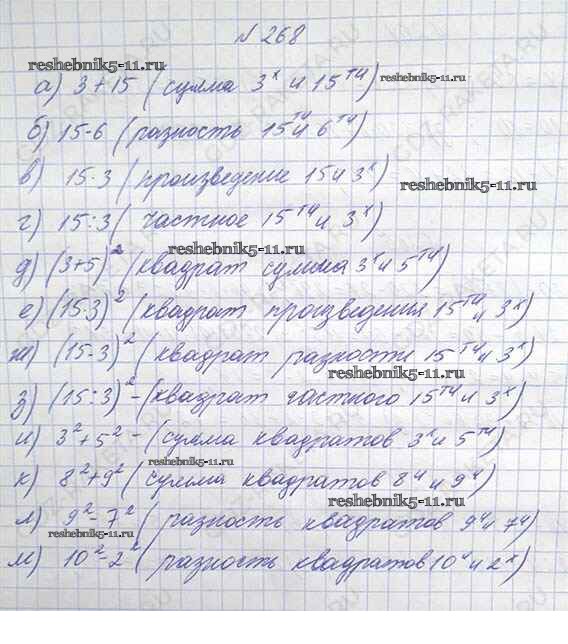 № 268
reshebnik5-11.ru
а) 3+15 (сумма 3ˣ и 15ᵀᴴ)
reshebnik5-11.ru
б) 15-6 (разность 15ᵀᴴ и 6ᵀᴴ)
в) 15·3 (произведение 15 и 3ˣ)
reshebnik5-11.ru
г) 15:3 (частное 15ᵀᴴ и 3ˣ)
reshebnik5-11.ru
д) (3+5)² (квадрат суммы 3ˣ и 5ᵀᴴ)
е) (15·3)² (квадрат произведения 15ᵀᴴ и 3ˣ)
ж) (15-3)² (квадрат разности 15ᵀᴴ и 3ˣ)
reshebnik5-11.ru
з) (15:3)² - (квадрат частного 15ᵀᴴ и 3ˣ)
и) 3²+5² - (сумма квадратов 3ˣ и 5ᵀᴴ)
reshebnik5-11.ru
к) 8²+9² (сумма квадратов 8ᴴ и 9ᴴ)
reshebnik5-11.ru
л) 9²-7² (разность квадратов 9ᴴ и 7ᴴ)
reshebnik5-11.ru
м) 10²-2² (разность квадратов 10ᴴ и 2ˣ)